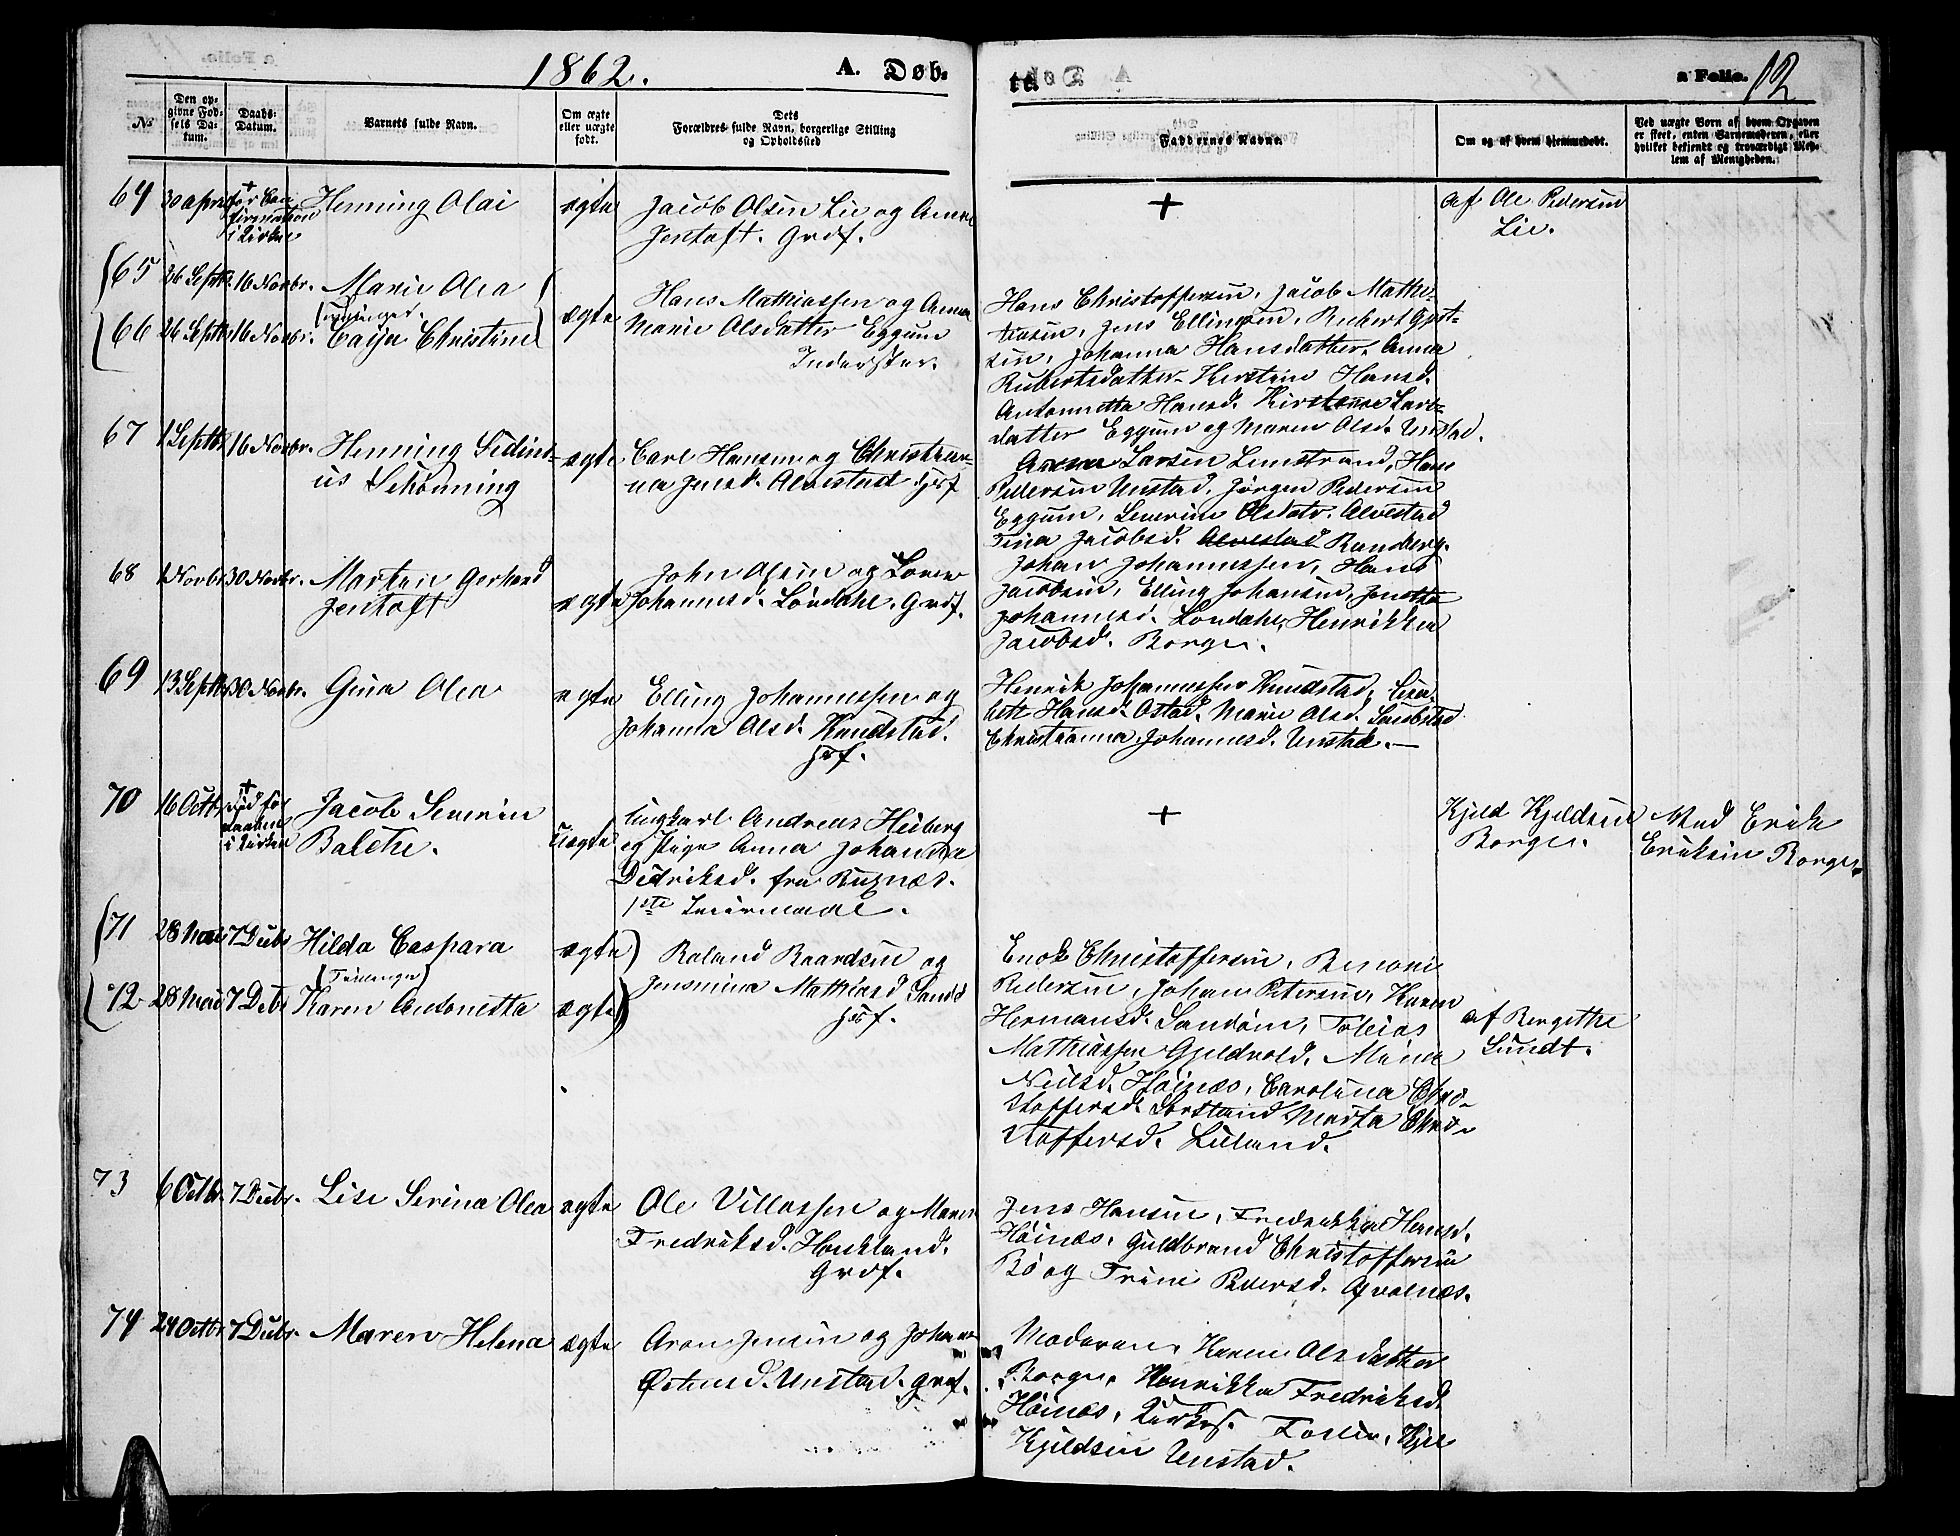 1862.
A. Døb-
te.
a Folio. 12
No
Den op-
givne Fød-
sels Da-
tum.
Daabs-
Datum.
Barnets fulde Navn.
Om ægte
eller uægte
født.
Dets
Forældres fulde Navn, borgerlige Stilling
og Opholdssted
Faddernes Navne.
Om og af hvem hjemmedøbt.
Ved uægte Børn af hvem Opgaven
er skeet, enten Barnemoderen, eller
hvilket bekjendt og troværdigt Med-
lem af Menigheden.
64 30 april + før Con
firmation
i Kirken
Henning Olai
ægte
Jacob Olsen Lie og Anna
Jentoft. Grdf.
+
af Ole Pedersen
Lie.
65 26 Septbr 16 Novbr. Marie Olea
Tvillinger.
66 26 Septbr 16 Novbr. Caija Christine
ægte
Hans Mathiassen og Anna
Marie Olsdatter Eggum
Inderster.
Hans Christoffersen, Jacob Mathi-
sen, Johanna Hansdatter. Anna
Rubertsdatter. Kirstein Hansd.
Antonnetta Hansd. Kirstense Lars-
datter Eggum og Maren Olsd. Unstad.
67 1 Septbr 16 Novbr. Henning Edinrd-
us Schønning
ægte
Carl Hansen og Christian-
na Jensd. Alvestad Hsf
Larsen Limstrand, Hans
Pedersen Unstad, Jørgen Pedersen
Eggum, Severine Olsdatr. Alvestad
Tina Jacobsd. Alvestad Ramberg.
68 1 Novbr 30 Novbr. Martin Gerhard
Jentoft
ægte
John Olsen og Lovise
Johannesd. Løvdahl. Grdf.
Johan Johannessen, Hans
Jacobsen, Elling Johansen, Jonetta
Johannesd. Løvdahl, Henrikka
Jacobsd. Borge.
69 13 Septbr 30 Novbr. Gina Olea
ægte
Elling Johannessen og
Johanna Olsd. Knudstad.
Hsf.
Henrik Johannessen Knudstad, Elisa-
beth Hansd. Ostad. Marie Olsd.
Christianna Johannesd. Unstad.
70 16 Octbr + død før
daaben
i Kirken
Jacob Severin
Balche.
Uægte
Ungkarl Andreas Heiberg
og Pige Anna Johanna
Didriksd. fra Buxnæs.
1ste Leiermaal.
+
Kjeld Kjeldsen
Borge.
Ved Erik
Eriksen Borge.
71 28 Mai 7 Debr Hilda Caspara
Tvillinger
ægte
72 28 Mai 7 Debr Karen Antonetta
ægte
Roland Baardsen og
Jensmina Mathiasd Sund
Hsf.
Enok Christoffersen, Benoni
Pedersen, Johan Petersen, Karen
Hermansd. Sandøen, Tobias
Mathiassen Gjeldvold. Mina
Nielsd. Høinæs, Carolina Chri-
stoffersd. Marta Chri-
stoffersd. Lieland.
af Bergithe
Lundt.
73 6 Octbr. 7 Debr. Lise Serina Olea ægte
Ole Villassen og Maren
Fredriksd. Haukland.
Grdf.
Jens Hansen, Fredrikka Hansd.
Høinæs, Guldbrand Christoffersen
Bø og Trine Pedersd. Qvalnæs.
74 24 Octbr 7 Debr. Maren Helena ægte
Aron Jensen og Johanna
Østensd. Unstad. Grdf.
Moderen, Karen Olsdatter
Borge, Henrikka Fredriksd
Høinæs, Kirkes. Tollev, Kjel
Kjeldsen Unstad.